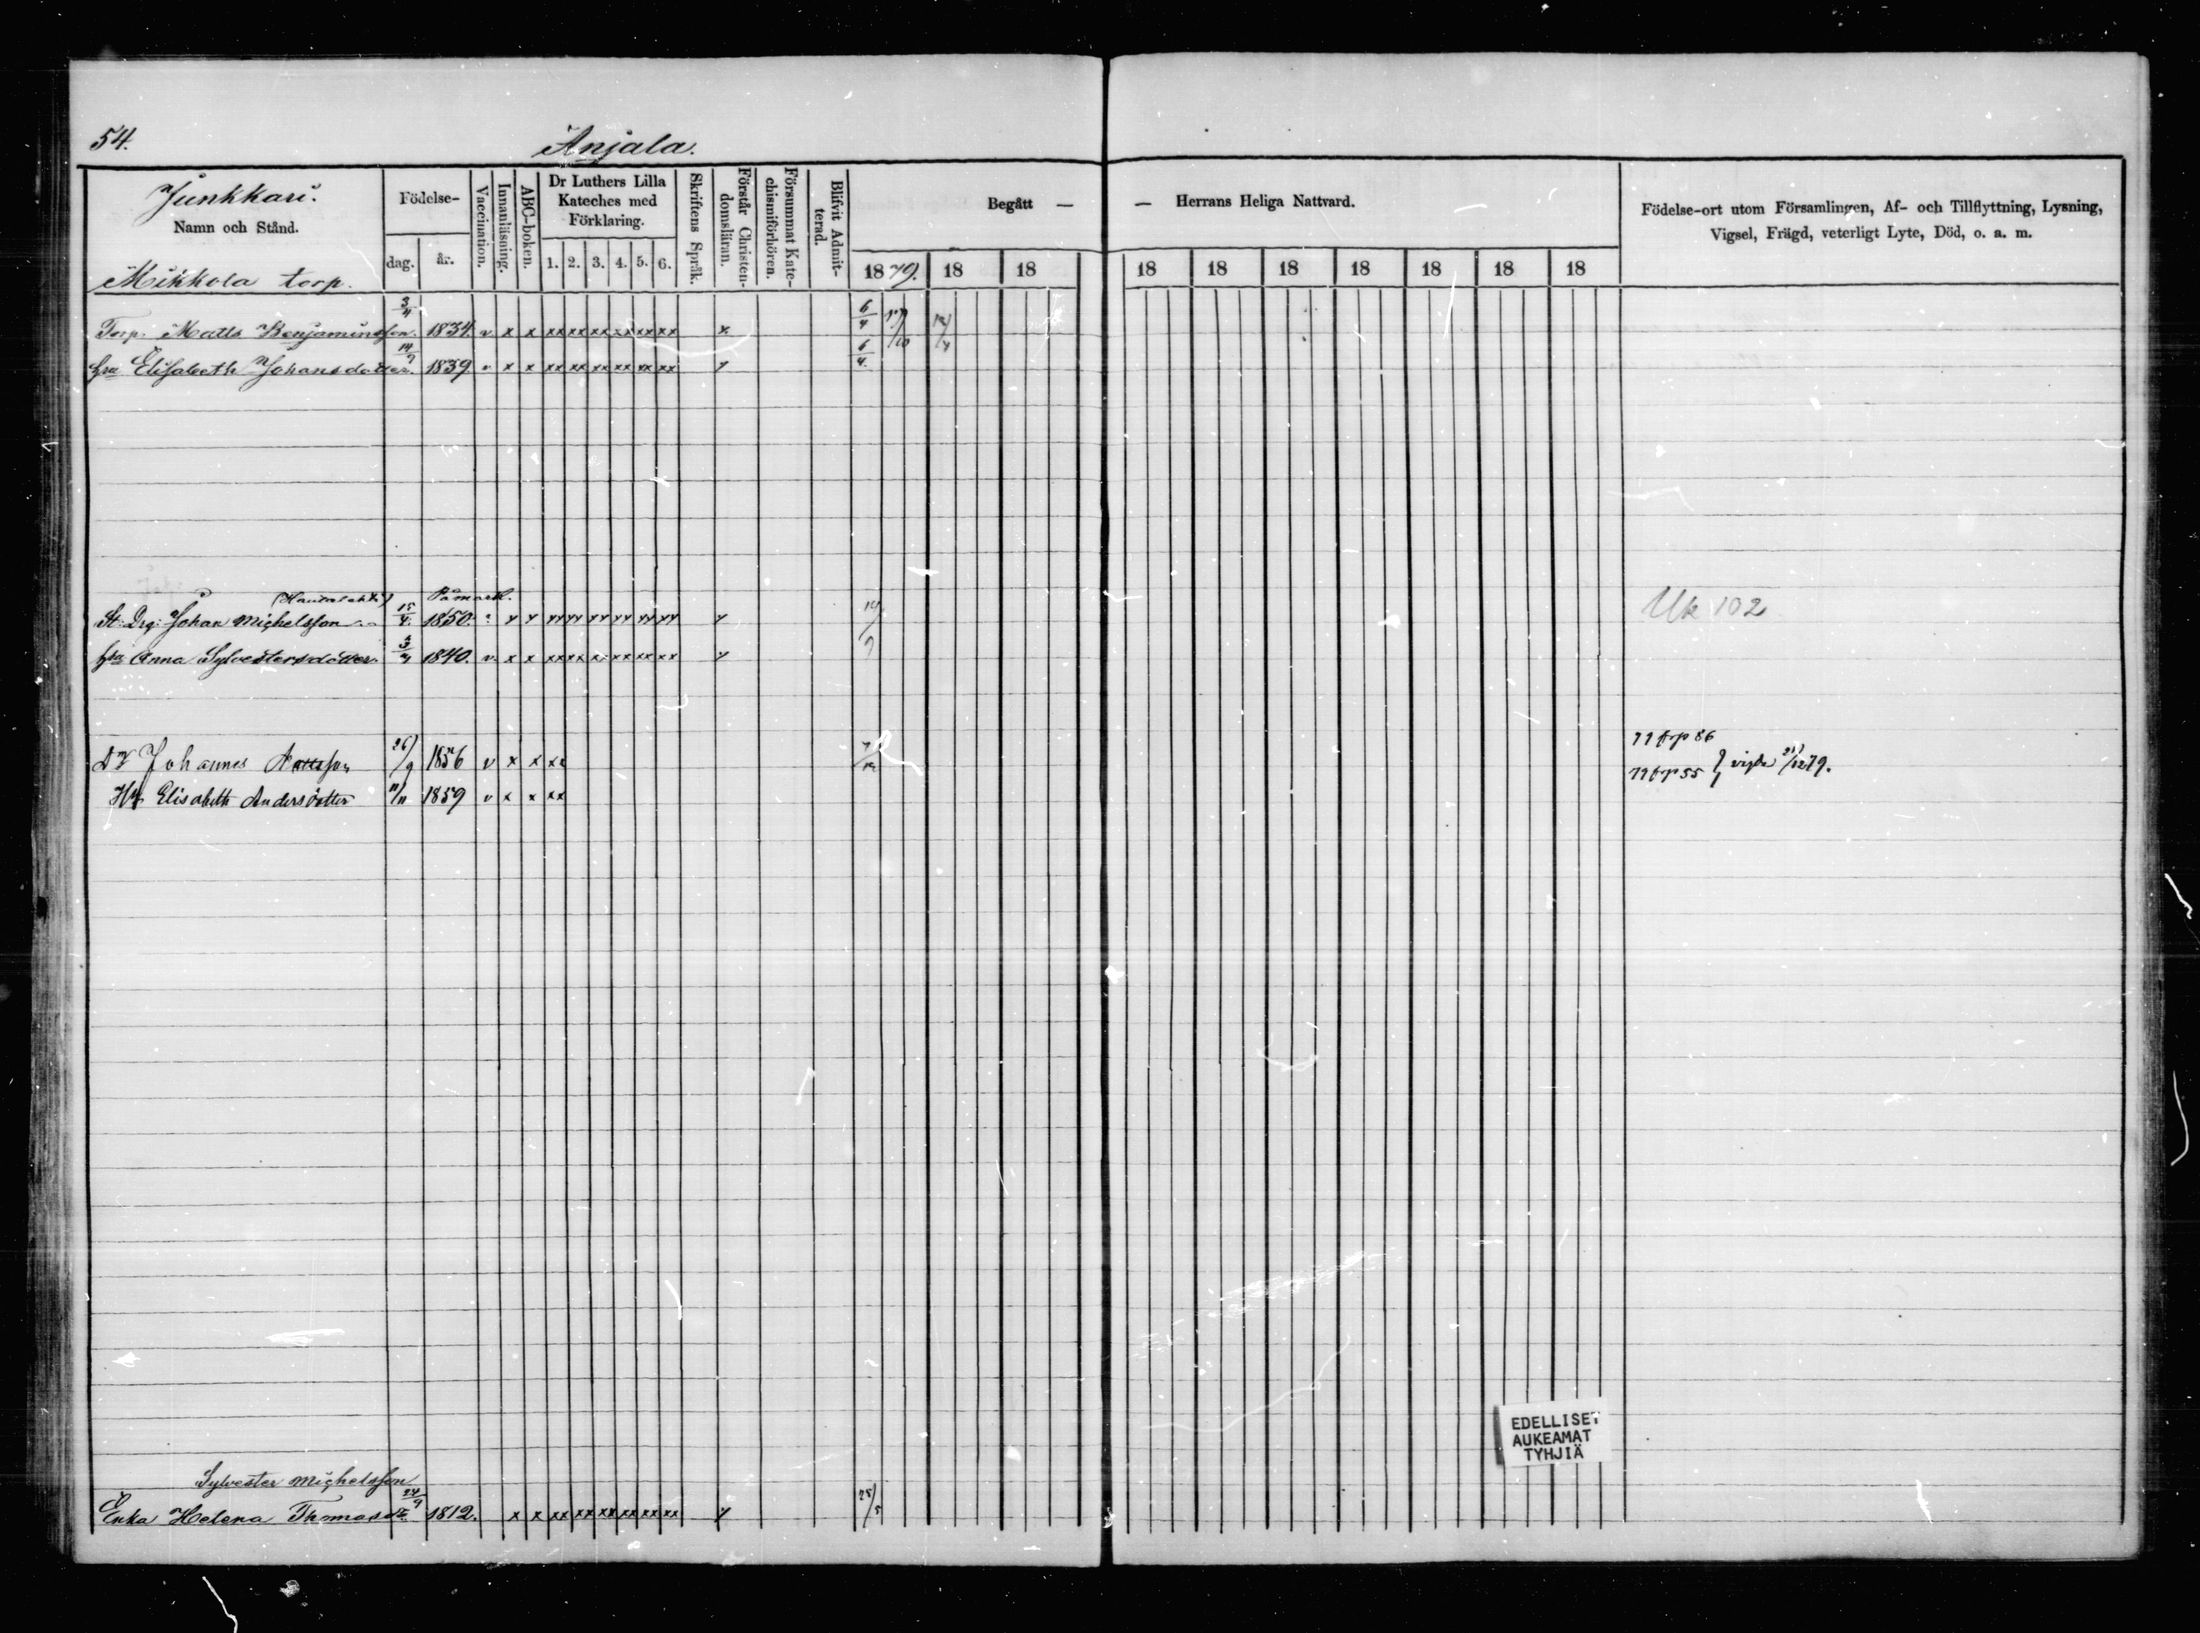 54.
Anjala.
Junkkari.
Namn och Stånd.
Mikkola torp.
Födelse-
dag.
år.
Vaccination.
Innanläsning.
ABC-boken.
Dr Luthers Lilla
Kateches med
Förklaring.
1. 2. 3. 4. 5. 6.
Skriftens Språk.
Förstår Christen-
domsläran.
Försummat Kate-
chismiförhören.
Blifvit Admit-
terad.
Begått —
— Herrans Heliga Nattvard.
1879. 18 18
18 18 18 18 18 18 18
Födelse-ort utom Församlingen, Af- och Tillflyttning, Lysning,
Vigsel, Frägd, veterligt Lyte, Död, o. a. m.
Torp. Matts Benjaminsson. 3/4 1834. v x x xx xx xx xx xx xx x 6/4
hru Elisabeth Johansdotter. 14/7 1839 v x x xx xx xx xx xx xx x 6/4
(Hautalahti) Påmark.
St: Drg: Johan Michelsson 15/4 1850. x x xx xx xx xx xx xx x Uk 102
hru Anna Sylvestersdotter 3/4 1840. v x x xx xx xx xx xx xx x
Johannes 26/9 1856 v x x xx
Elisabeth Andersdotter 11/11 1859 v x x xx
vigda 79.
Sylvester Michelsson
Enka Helena Thomasdr. 24/9 1812. x x xx xx xx xx xx xx x 25/5
EDELLISET
AUKEAMAT
TYHJIÄ